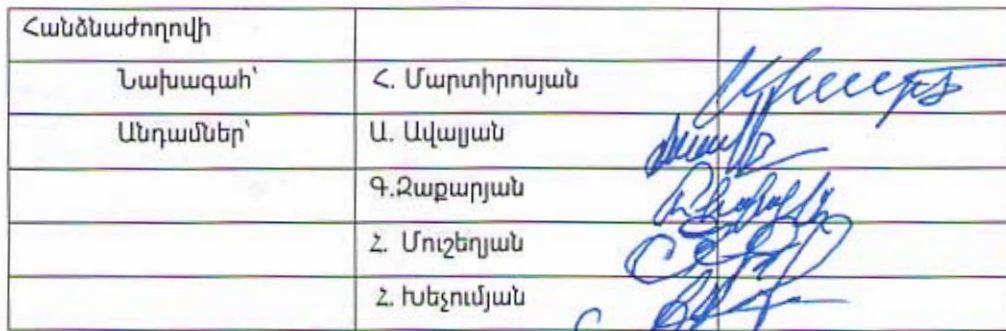 Հանձնաժողովի
Նախագահ՝ Հ. Մարտիրոսյան
Անդամներ՝ Ա. Ավալյան
Գ.Զաքարյան
Զ. Մուշեղյան
Հ. Խեչումյան